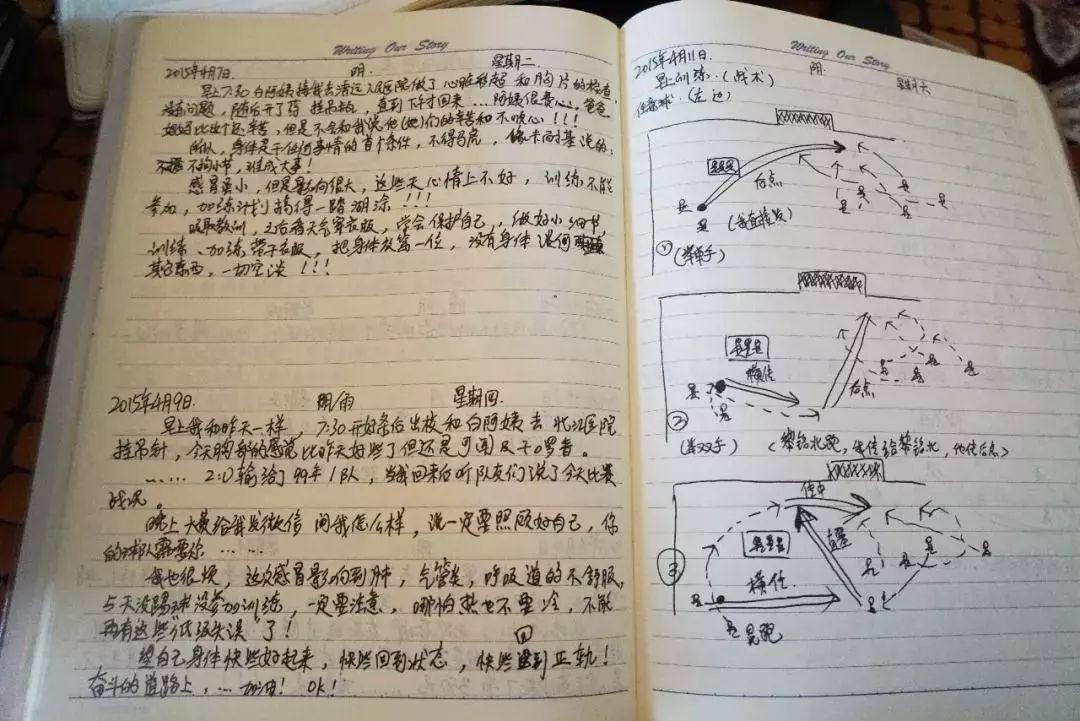 Writing Our Story
2015年4月7日 阴. 星期二.
早上7:30白阿姨接我去清远人民医院做了心脏彩超和胸片的检查,
没有问题,随后开了药 挂吊瓶,直到下午才回来...阿姨很费心,爸爸
妈妈比这个还辛苦,但是不会和我说他(她)们的辛苦和不顺心!!!
所以,身体是干任何事情的首个条件,不得马虎,像卡耐基说的:
不拘小节,难成大事!
感冒虽小,但是影响很大,这些天心情上不好,训练不能
参加,加练计划搞得一踏湖涂!!!
吸取教训,之后看天气穿衣服,学会保护自己,做好小细节,
训练、加练带干衣服,把身体放第一位,没有身体谈何
其它东西,一切空谈!!!
2015年4月9日. 阴雨 星期四.
早上我和昨天一样,7:30开好条后出校和白阿姨去北江医院
挂吊针,今天胸部的感觉比昨天好些了但还是可闻及干啰音。
...... 2:0输给了99年1队,当我回来后听队友们说了今天比赛
战况。
晚上大黄给我发微信问我怎么样,说一定要照顾好自己,你
的球队需要你......
我也很烦,这次感冒影响到肺,气管炎,呼吸道的不舒服,
5天没踢球没参加训练,一定要注意,哪怕热也不要冷,不能
再有这些"低级失误"了!
望自己身体快些好起来,快些回到状态,快些回到正轨!
奋斗的道路上,...加油! OK!
Writing Our Story
2015年4月11日. 阴. 星期六
早上训练.(战术)
任意球.(左边)
后点
(我直接发)
①(举单手)
横传
后点
②
(举双手) (黎铭北跑,我传给黎铭北,他传后点)
传中
直塞
横传
③
晃跑